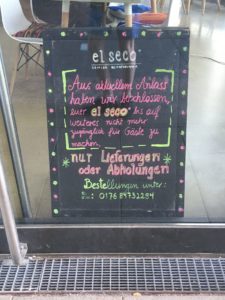 el seco
Aus aktuellem Anlass
haben wir beschlossen,
el seco bis auf
weiteres nicht mehr
zugänglich für Gäste zu
machen.
nur Lieferungen
oder Abholungen
Bestellungen unter: